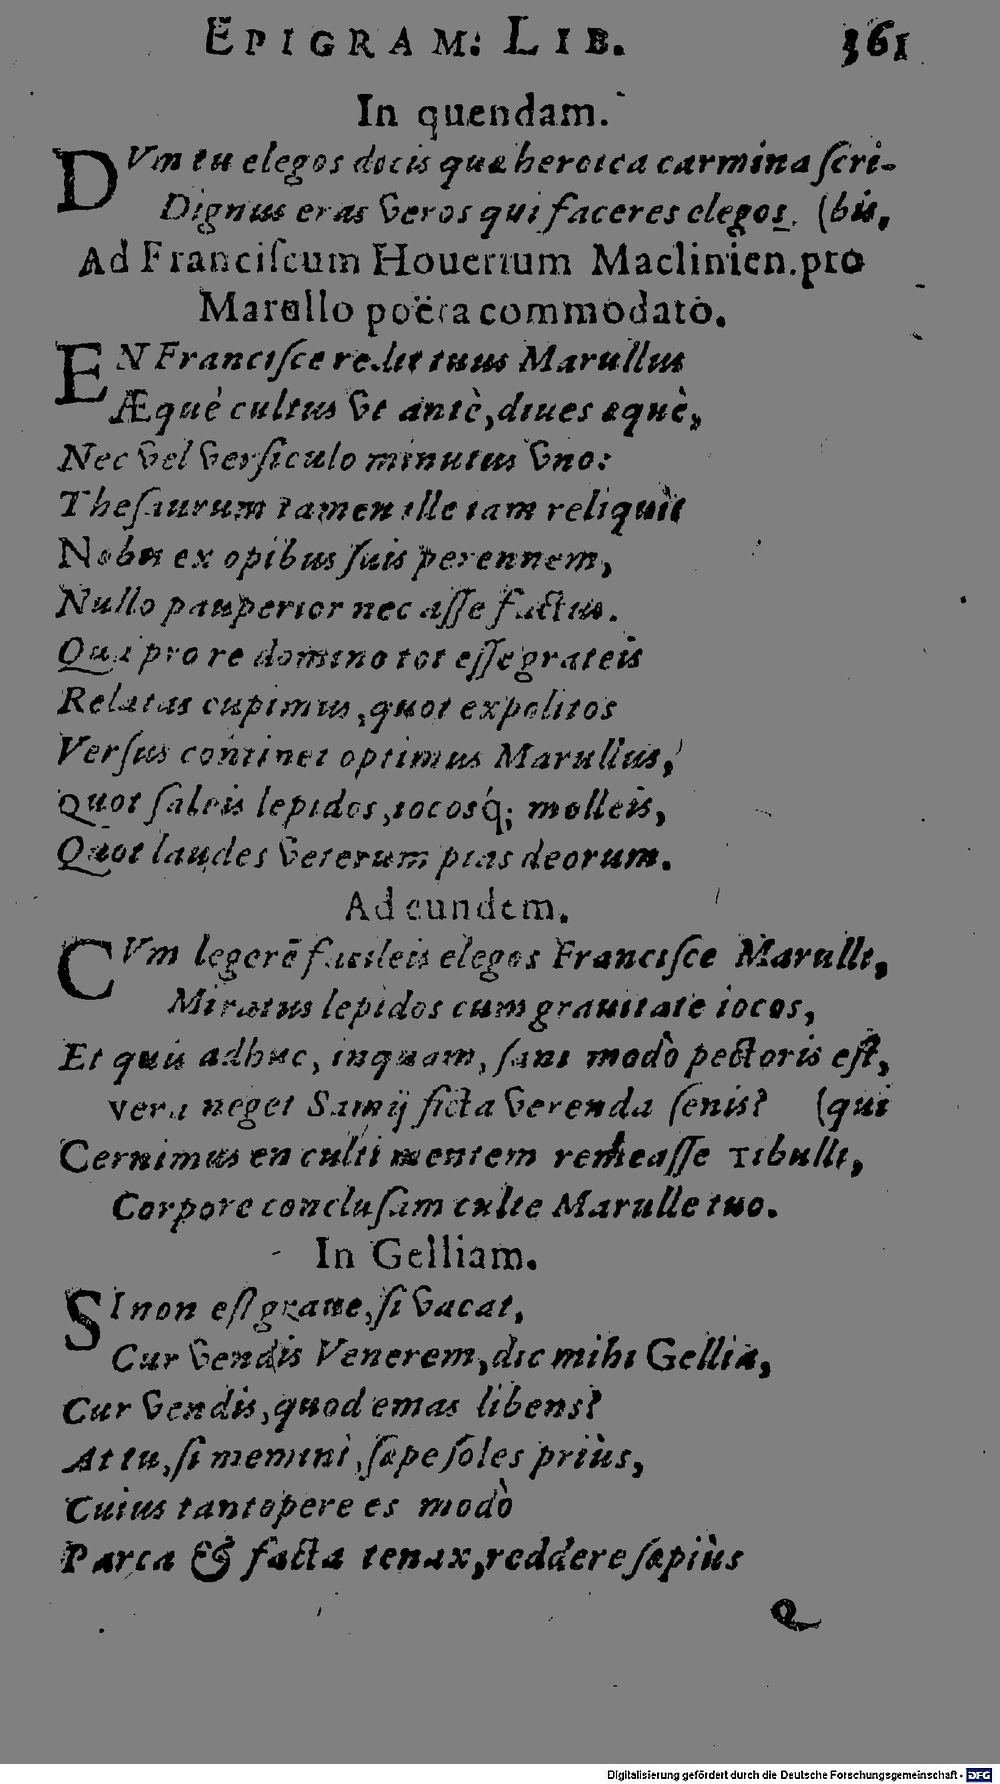 EPIGRAM: LIB. 361
In quendam.
DVm tu elegos docis quæ heroica carmina ſcri-
Dignus eras veros qui faceres elegos. (bis,
Ad Franciſcum Houerium Maclinien. pro
Marullo poëta commodato.
EN Franciſce redit tuus Marullus
Æquè cultus vt antè, diues æquè,
Nec vel verſiculo minutus vno:
Theſaurum tamen ille iam reliquit
Nobis ex opibus ſuis perennem,
Nullo pauperior nec aſſe factus.
Qua pro re domino tot eſſe grateis
Relatas cupimus, quot expolitos
Verſus continet optimus Marullus,
Quot ſaleis lepidos, iocosq́; molleis,
Quot laudes veterum pias deorum.
Ad eundem.
CVm legerē facileis elegos Franciſce Marulli,
Miratus lepidos cum grauitate iocos,
Et quis adhuc, inquam, ſani modò pectoris eſt,
vera neget Samij ficta verenda ſenis? (qui
Cernimus en culti mentem remeaſſe Tibulli,
Corpore concluſam culte Marulle tuo.
In Gelliam.
SI non eſt graue, ſi vacat,
Cur vendis Venerem, dic mihi Gellia,
Cur vendis, quod emas libens?
At tu, ſi memini, ſæpe ſoles priùs,
Cuius tantopere es modò
Parca & facta tenax, reddere ſæpiùs
Q
Digitalisierung gefördert durch die Deutsche Forschungsgemeinschaft - DFG